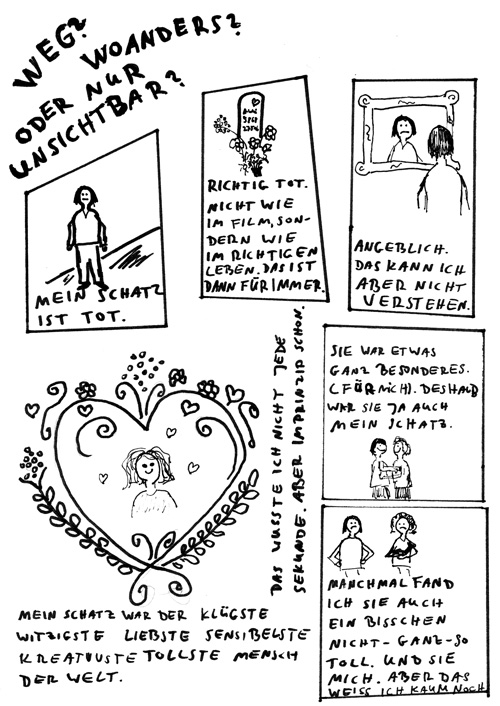 WEG?
WOANDERS?
ODER NUR
UNSICHTBAR?
MEIN SCHATZ
IST TOT.
RICHTIG TOT.
NICHT WIE
IM FILM, SON-
DERN WIE
IM RICHTIGEN
LEBEN. DAS IST
DANN FÜR IMMER.
ANGEBLICH.
DAS KANN ICH
ABER NICHT
VERSTEHEN.
MEIN SCHATZ WAR DER KLÜGSTE
WITZIGSTE LIEBSTE SENSIBELSTE
KREATIVSTE TOLLSTE MENSCH
DER WELT.
DAS WUSSTE ICH NICHT JEDE
SEKUNDE. ABER IM PRINZIP SCHON.
SIE WAR ETWAS
GANZ BESONDERES.
(FÜR MICH). DESHALB
WAR SIE JA AUCH
MEIN SCHATZ.
MANCHMAL FAND
ICH SIE AUCH
EIN BISSCHEN
NICHT-GANZ-SO
TOLL. UND SIE
MICH. ABER DAS
WEISS ICH KAUM NOCH